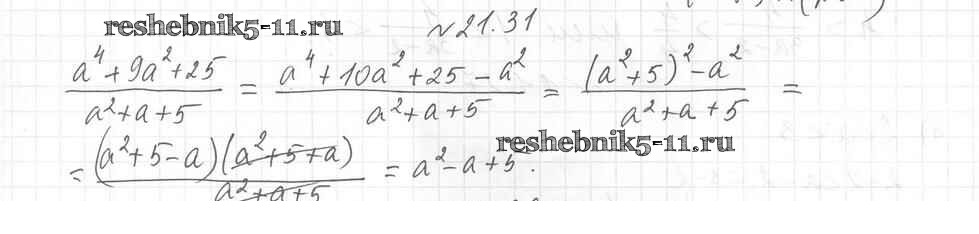 reshebnik5-11.ru
№21.31
(a⁴+9a²+25)/(a²+a+5) = (a⁴+10a²+25-a²)/(a²+a+5) = ((a²+5)²-a²)/(a²+a+5) =
reshebnik5-11.ru
= ((a²+5-a)(a²+5+a))/(a²+a+5) = a²-a+5.